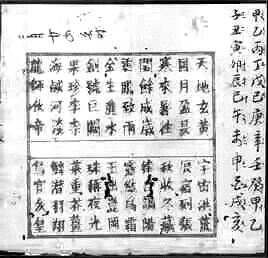 甲乙丙丁戊己庚辛壬癸甲乙
子丑寅卯辰巳午未申酉戌亥
天地玄黃
宇宙洪荒
日月盈昃
辰宿列張
寒來暑往
秋收冬藏
閏餘成歲
調陽
雲騰致雨
露結爲霜
金生麗水
玉出崑岡
劍號巨闕
珠稱夜光
果珍李柰
菜重芥薑
海鹹河淡
鱗潛羽翔
龍師火帝
鳥官人皇